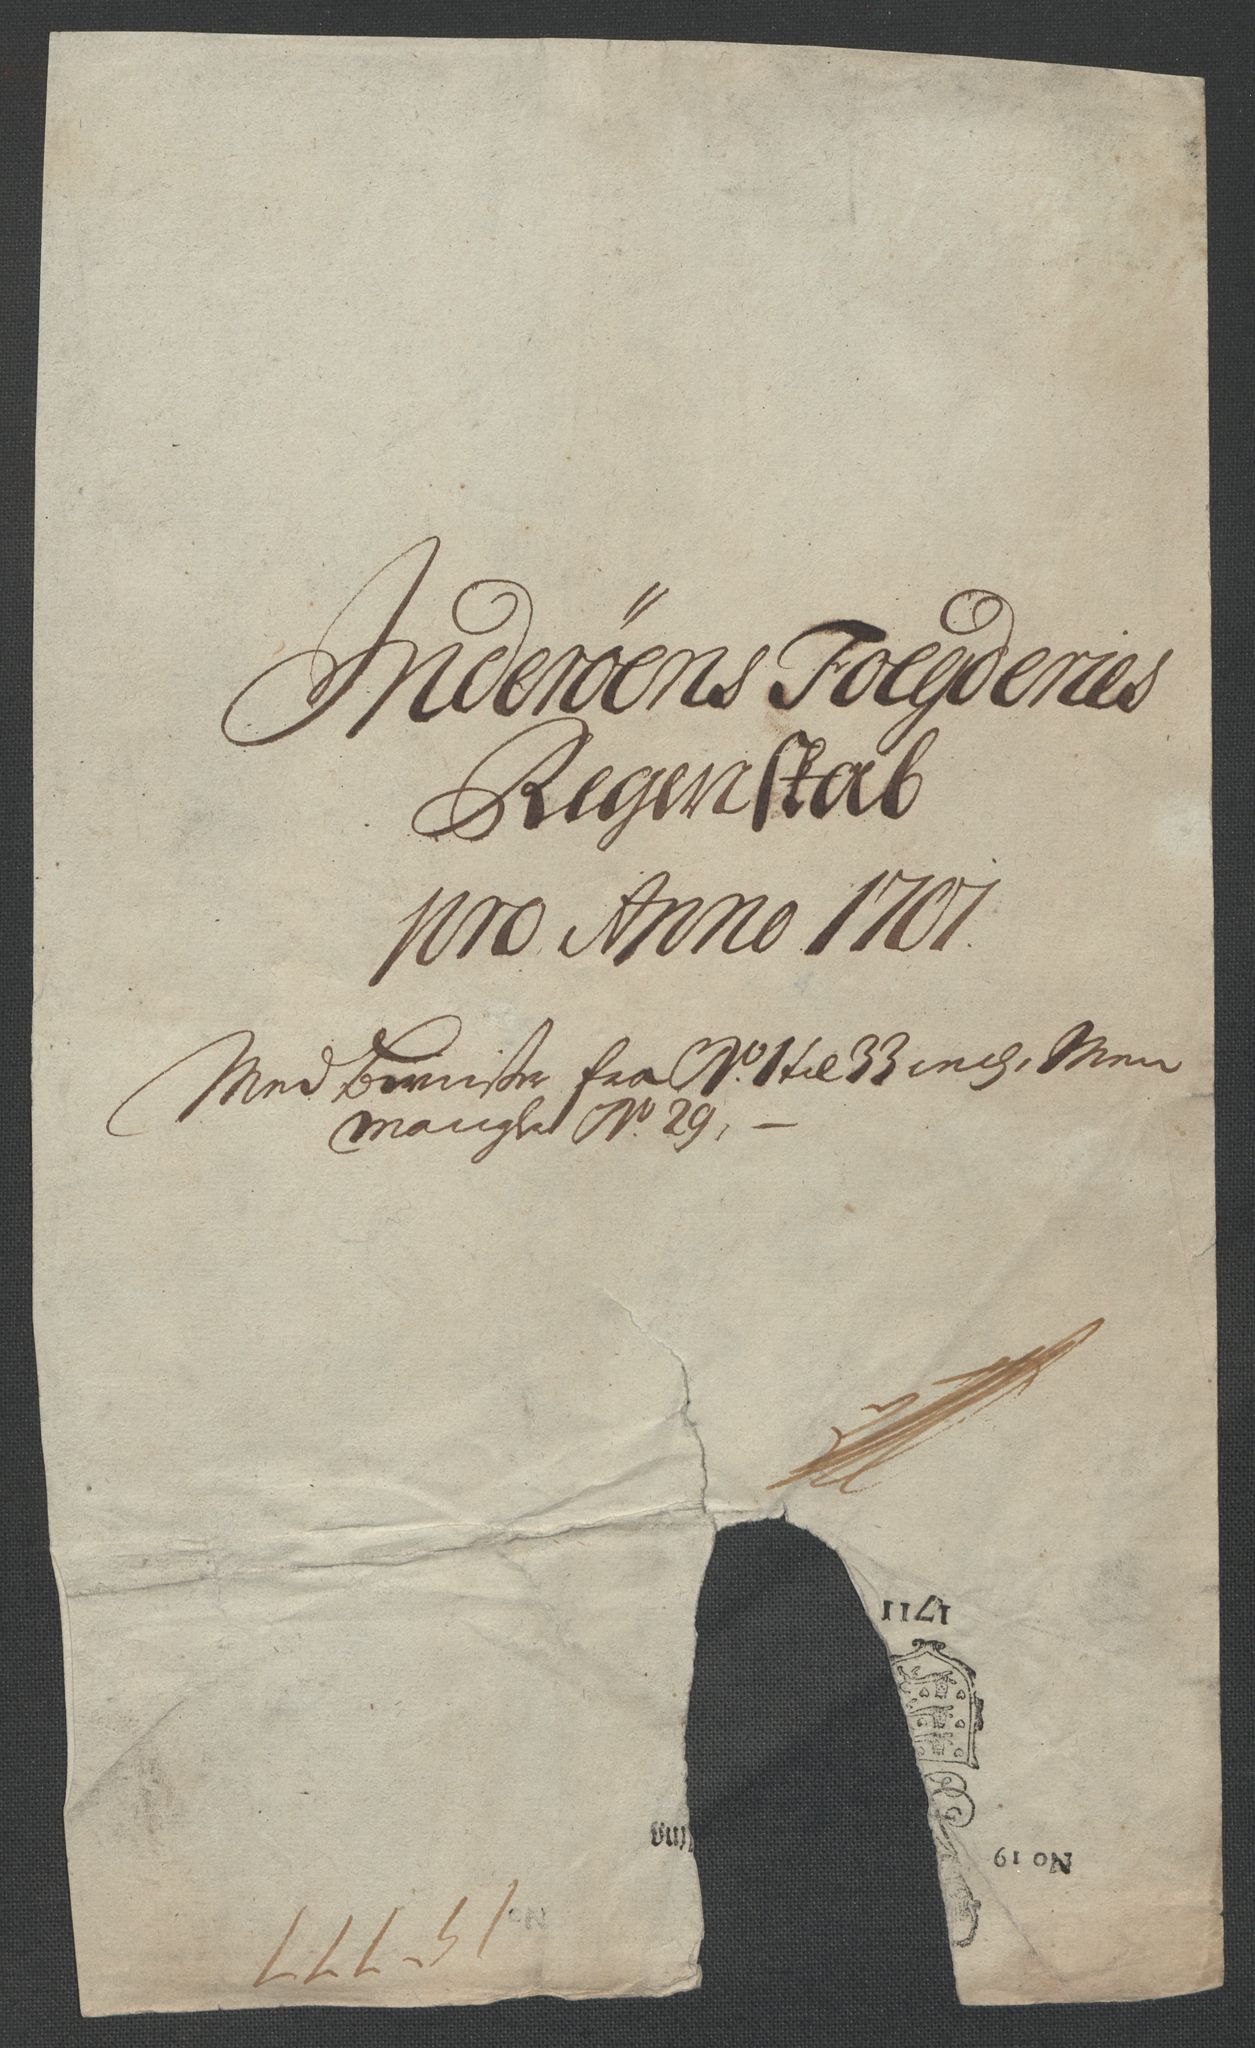 Inderöens Foegderies
Regenskab
pro Anno 1707.
Med beviiser fra No. 1 til 33 incl. Men
mangler No. 29, —
1711
No 19
No